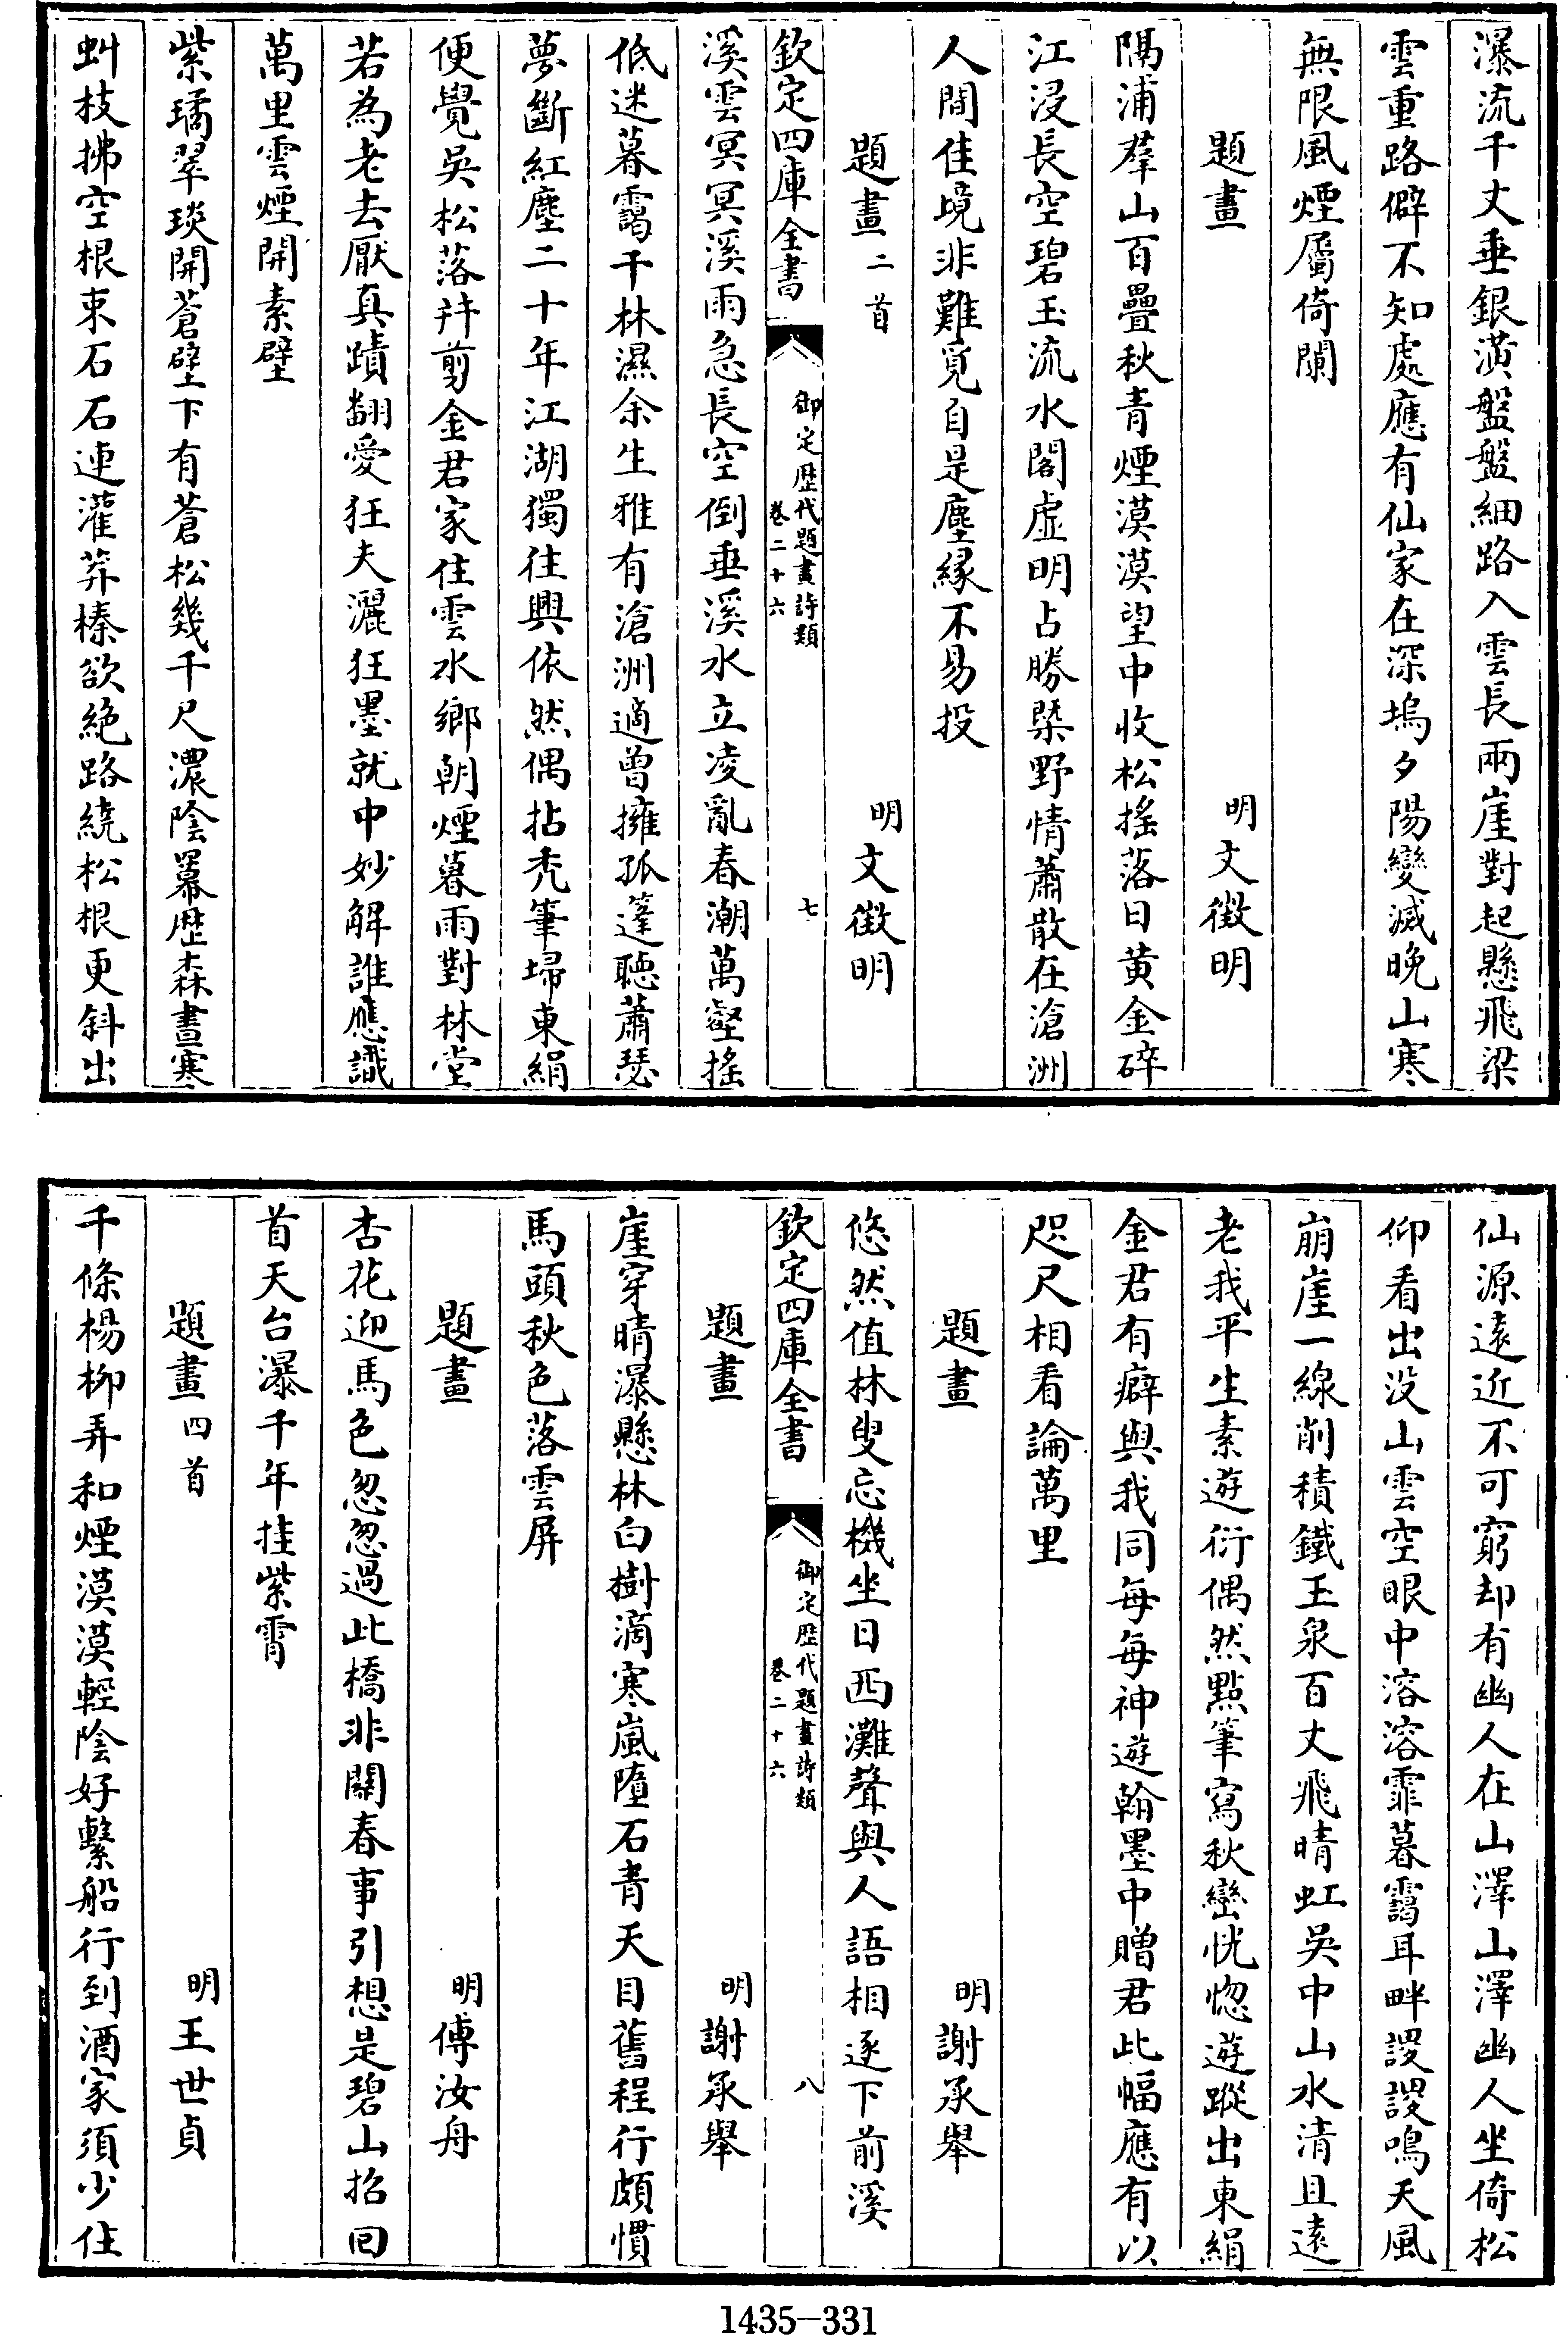 瀑流千丈垂銀潢盤盤細路入雲長兩崖對起懸飛梁
雲重路僻不知處應有仙家在深塢夕陽變滅晚山寒
無限風煙屬倚闌
題畫 明文徵明
隔浦羣山百疊秋青煙漠漠望中收松搖落日黃金碎
江浸長空碧玉流水閣虛明占勝槩野情蕭散在滄洲
人間佳境非難覓自是塵緣不易投
題畫二首 明文徵明
欽定四庫全書 御定歴代題畫詩類 卷二十六 七
溪雲冥冥溪雨急長空倒垂溪水立凌亂春潮萬壑搖
低迷暮靄千林濕余生雅有滄洲適曾擁孤篷聽蕭瑟
夢斷紅塵二十年江湖獨往興依然偶拈禿筆埽東絹
便覺吳松落幷剪金君家住雲水鄉朝煙暮雨對林堂
若為老去厭真蹟翻愛狂夫灑狂墨就中妙解誰應識
萬里雲煙開素壁
紫璚翠琰開蒼壁下有蒼松幾千尺濃陰羃歴森晝寒
虯枝拂空根束石石連灌莽榛欲絶路繞松根更斜出
仙源遠近不可窮却有幽人在山澤山澤幽人坐倚松
仰看出没山雲空眼中溶溶霏暮靄耳畔謖謖鳴天風
崩崖一線削積鐵玉泉百丈飛晴虹吳中山水清且遠
老我平生素遊衍偶然點筆寫秋巒恍惚遊蹤出東絹
金君有癖與我同每每神遊翰墨中贈君此幅應有以
咫尺相看論萬里
題畫 明謝承舉
悠然值林叟忘機坐日西灘聲與人語相逐下前溪
欽定四庫全書 御定歴代題畫詩類 卷二十六 八
題畫 明謝承舉
崖穿晴瀑懸林白樹滴寒嵐墮石青天目舊程行頗慣
馬頭秋色落雲屏
題畫 明傅汝舟
杏花迎馬色忽忽過此橋非關春事引想是碧山招回
首天台瀑千年挂紫霄
題畫四首 明王世貞
千條楊柳弄和煙漠漠輕陰好繫船行到酒家須少住
1435-331